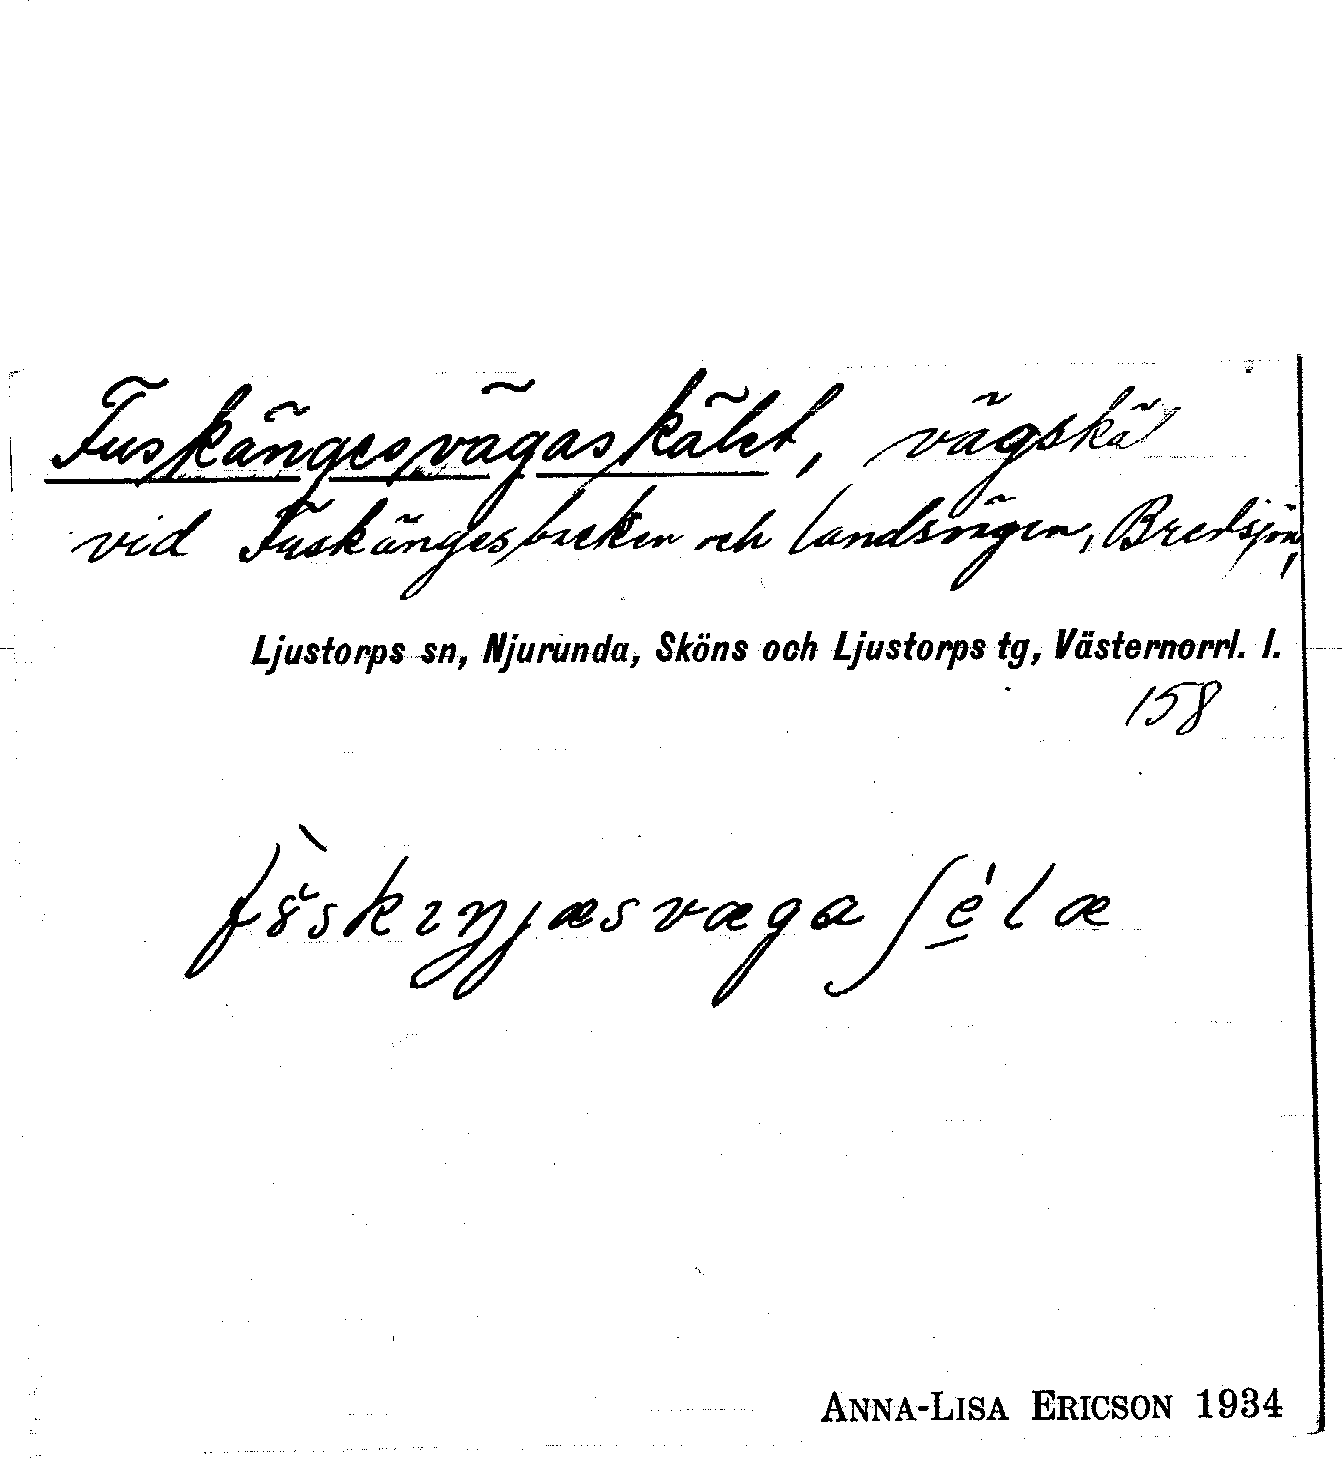 Fuskängesvägaskälet, vägskäl
vid Fuskängesbacken och landsvägen, Bredsjön,
Ljustorps sn, Njurunda, Sköns och Ljustorps tg, Västernorrl. l.
158
ANNA-LISA ERICSON 1934